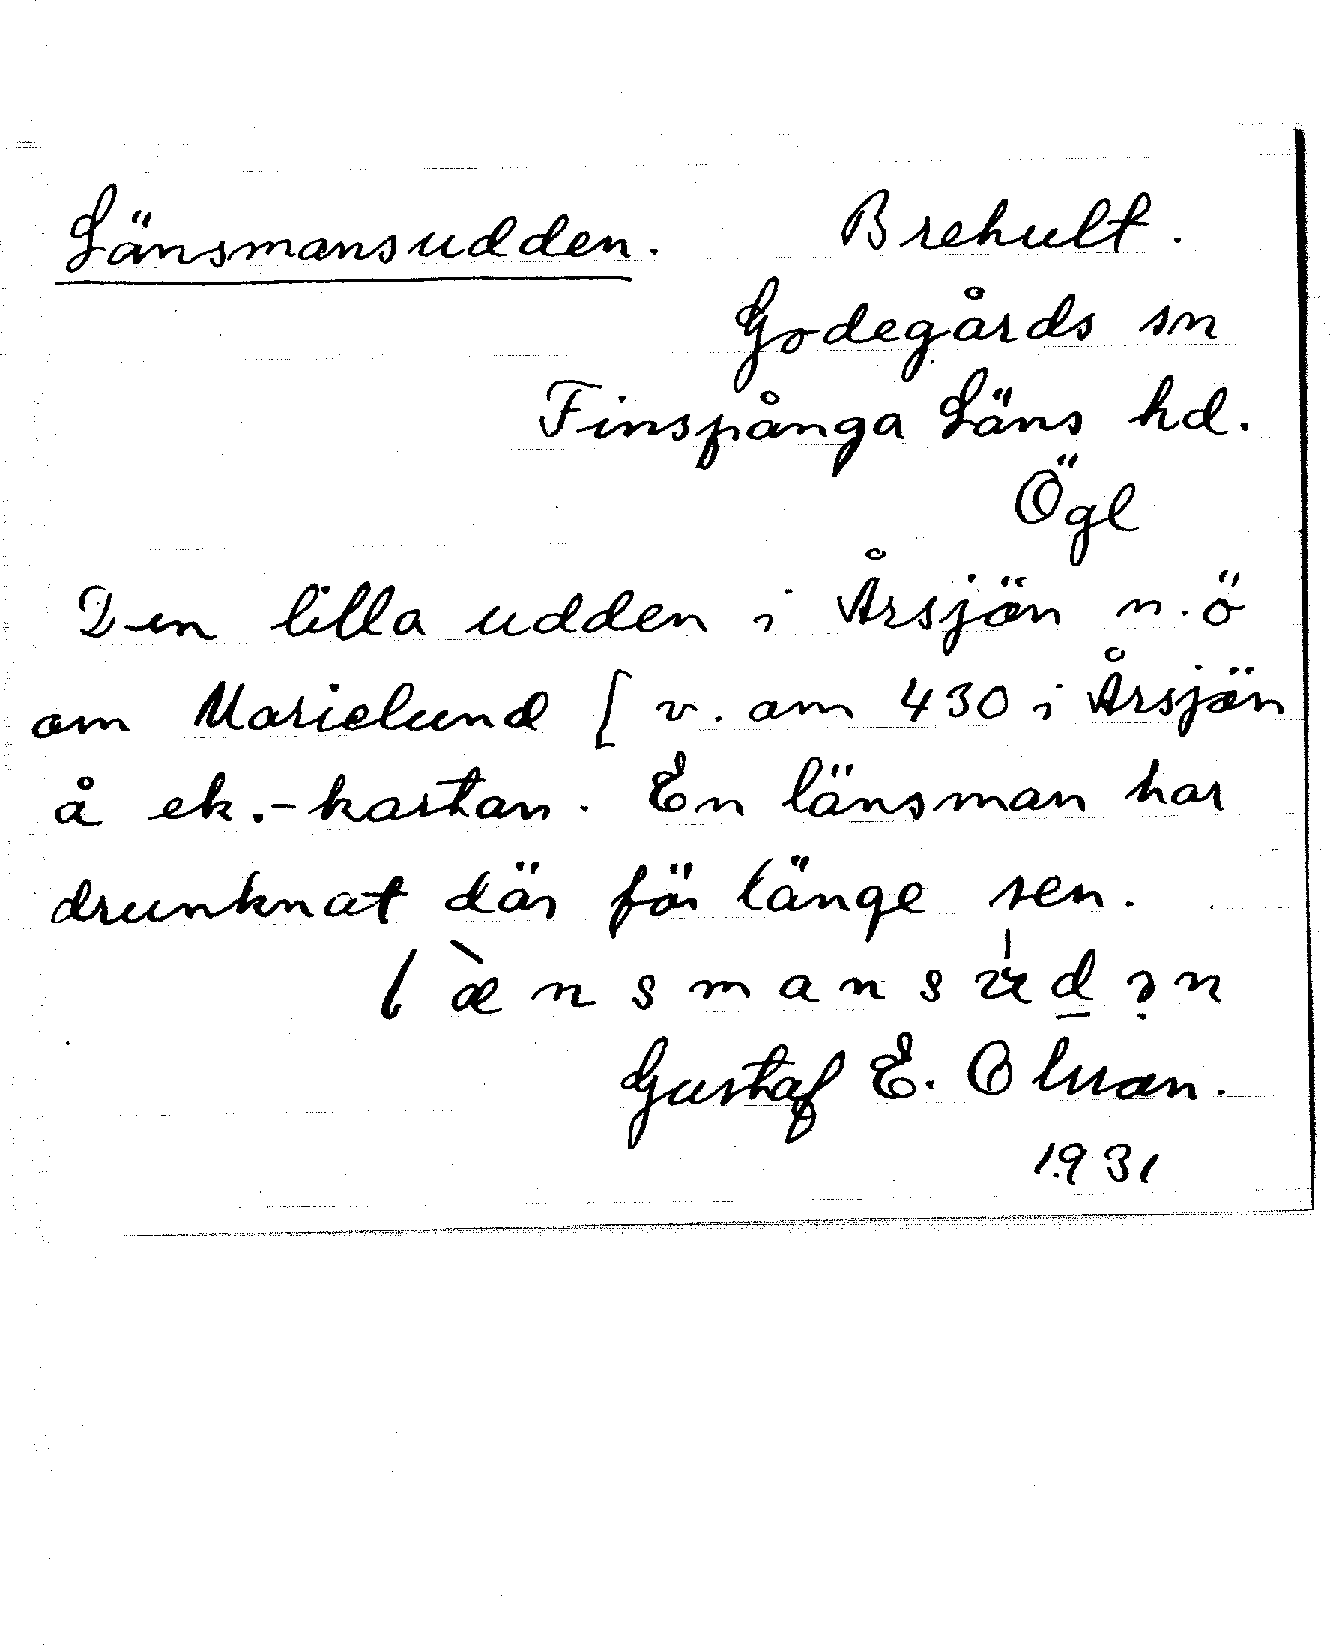 Länsmansudden. Brehult.
Godegårds sn
Finspånga Läns hd.
Ögl
Den lilla udden i Årsjön n.ö
om Marielund [ v. om 430 i Årsjön
å ek.-kartan. En länsman har
drunknat där för länge sen.
lænsmansudən
Gustaf E. Olsson.
1931